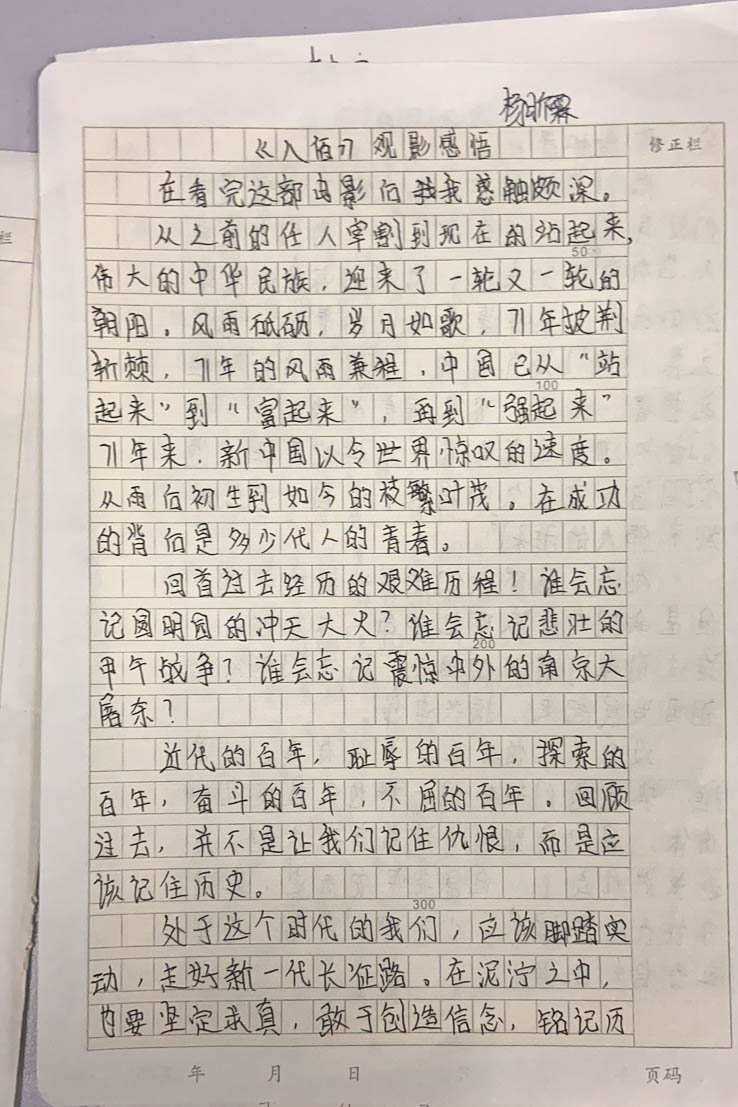 杨昕霖
《八佰》观影感悟
修正栏
在看完这部电影后我感触颇深。
从之前的任人宰割到现在的站起来,
50
伟大的中华民族，迎来了一轮又一轮的
朝阳。风雨砥砺，岁月如歌，71年披荆
斩棘，71年的风雨兼程，中国已从“站
100
起来”到“富起来”，再到“强起来”
71年来，新中国以令世界惊叹的速度。
从雨后初生到如今的枝繁叶茂。在成功
的背后是多少代人的青春。
回首过去经历的艰难历程！谁会忘
记圆明园的冲天大火？谁会忘记悲壮的
200
甲午战争？谁会忘记震惊中外的南京大
屠杀？
近代的百年，耻辱的百年，探索的
百年，奋斗的百年，不屈的百年。回顾
过去，并不是让我们记住仇恨，而是应
该记住历史。
300
处于这个时代的我们，应该脚踏实
动，走好新一代长征路。在泥泞之中，
也要坚定求真，敢于创造信念，铭记历
年 月 日 页码
栏